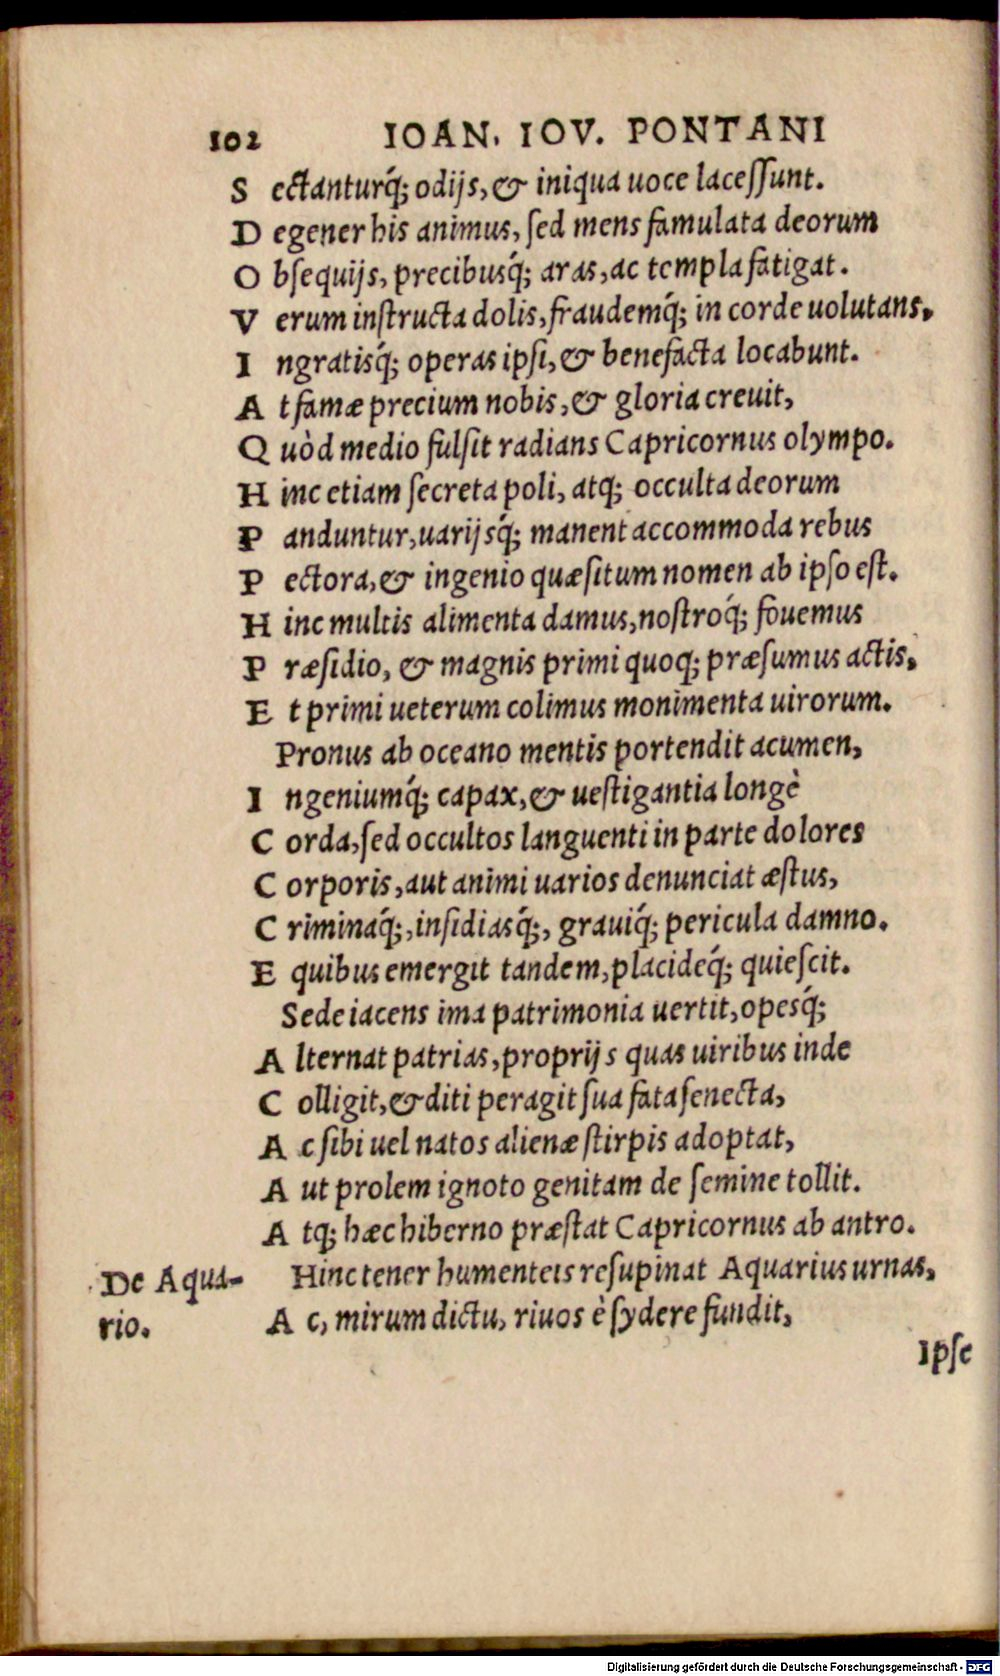 102 IOAN. IOV. PONTANI
S ectanturq́; odijs, & iniqua uoce laceſſunt.
D egener his animus, ſed mens famulata deorum
O bſequijs, precibusq́; aras, ac templa fatigat.
V erum inſtructa dolis, fraudemq́; in corde uolutans,
I ngratisq́; operas ipſi, & benefacta locabunt.
A t famæ precium nobis, & gloria creuit,
Q uòd medio fulſit radians Capricornus olympo.
H inc etiam ſecreta poli, atq; occulta deorum
P anduntur, uarijsq́; manent accommoda rebus
P ectora, & ingenio quæsitum nomen ab ipſo eſt.
H inc multis alimenta damus, noſtroq́; fouemus
P ræſidio, & magnis primi quoq; præſumus actis,
E t primi ueterum colimus monimenta uirorum.
Pronus ab oceano mentis portendit acumen,
I ngeniumq́; capax, & ueſtigantia longè
C orda, ſed occultos languenti in parte dolores
C orporis, aut animi uarios denunciat æſtus,
C riminaq́;, inſidiasq́;, grauiq́; pericula damno.
E quibus emergit tandem, placideq́; quieſcit.
Sede iacens ima patrimonia uertit, opesq́;
A lternat patrias, proprijs quas uiribus inde
C olligit, & diti peragit ſua fata ſenecta,
A c ſibi uel natos alienæ ſtirpis adoptat,
A ut prolem ignoto genitam de ſemine tollit.
A tq; hæc hiberno præſtat Capricornus ab antro.
De Aqua- Hinc tener humenteis reſupinat Aquarius urnas,
rio. A c, mirum dictu, riuos è ſydere fundit,
Ipſe
Digitalisierung gefördert durch die Deutsche Forschungsgemeinschaft - DFG